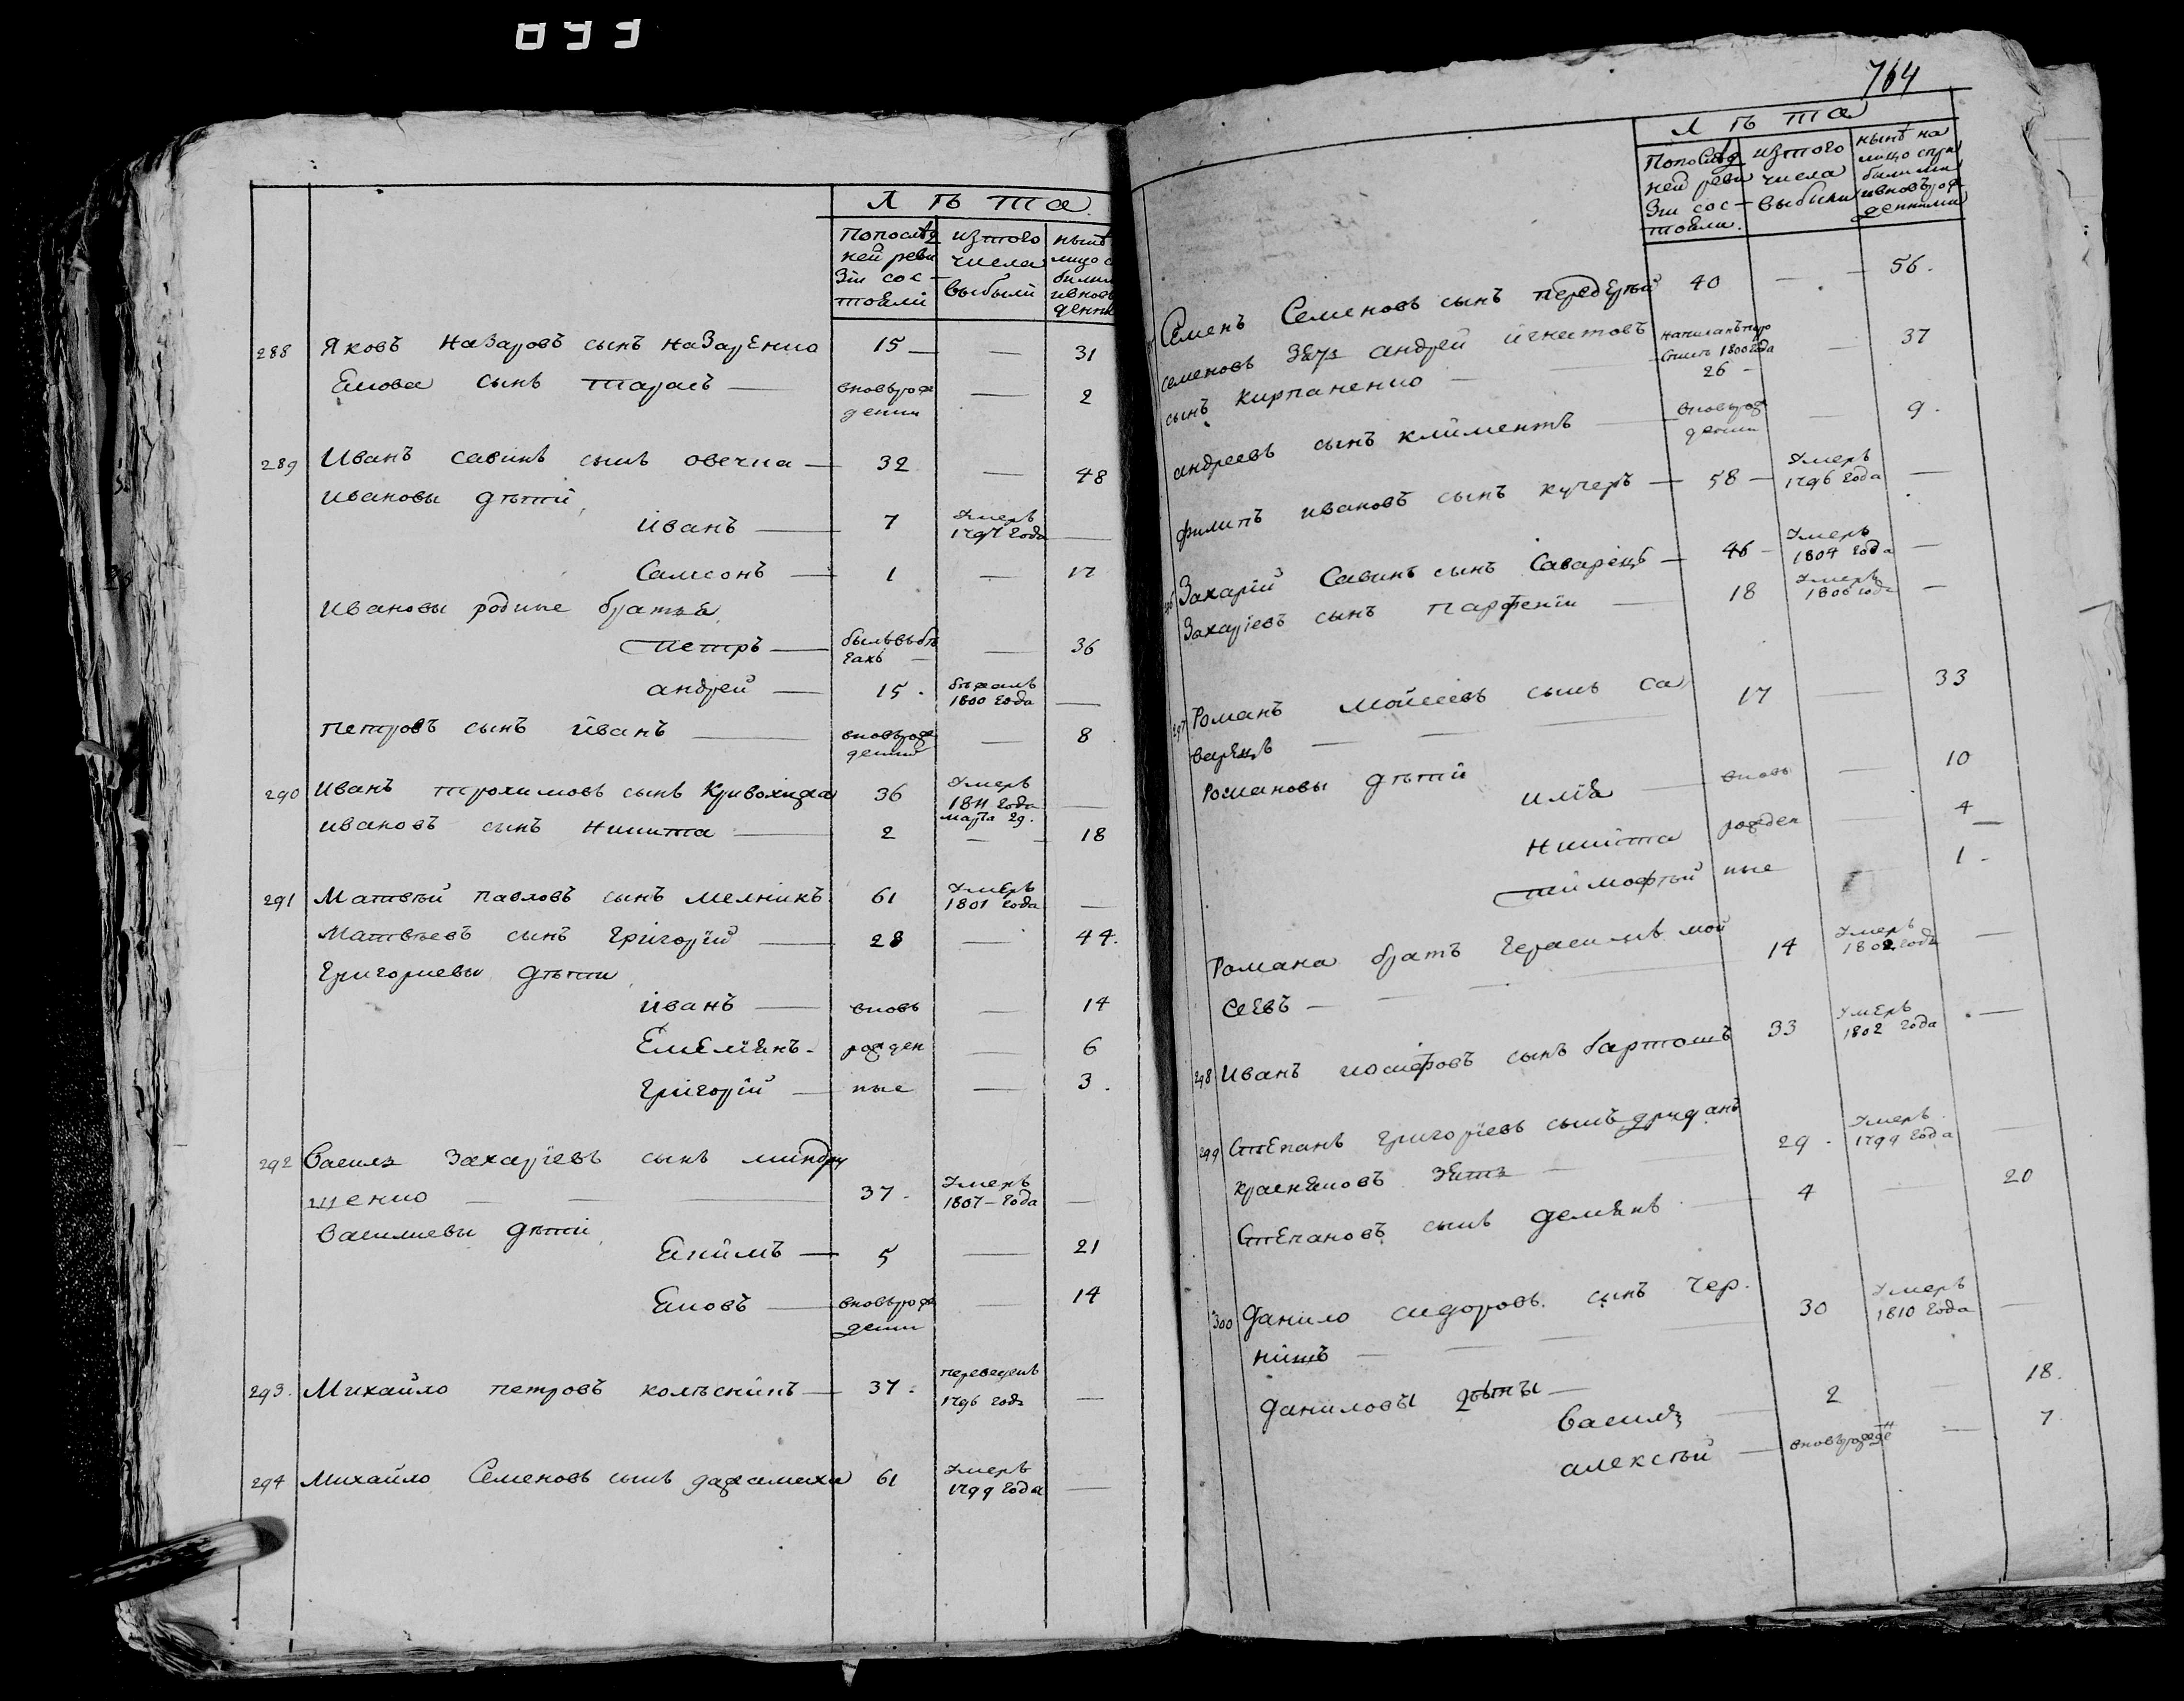 Лѣта
Попослѣд изтого нынѣ
ней реви числа лицо с
зіи сос- выбыли былим
тояли ивнов
денн
288 Яковъ Назаровъ сынъ Назаренко 15 — — 31
Якова сынъ Тарасъ — вновьрож — 2
денни
289 Иванъ Савинъ сынъ Овечка — 32 — 48
Ивановы дѣти,
Иванъ — 7 Умеръ
1797 года —
Самсонъ — 1 — 17
Ивановы родные братья,
Петръ — былъвъбѣ — 36
гахъ —
Андрей — 15. бѣжалъ
1800 года —
Петровъ сынъ Иванъ — вновьрож — 8
денний
290 Иванъ Трохимовъ сынъ Кривохижа 36 Умеръ
1811 года —
марта 29.
Ивановъ сынъ Никита — 2 — — 18
291 Матвѣй Павловъ сынъ Мелникъ 61 Умеръ
1801 года —
Матвѣевъ сынъ Григорій — 28 — 44.
Григориевы дѣти,
Иванъ — вновь — 14
Емелянъ — рожден — 6
Григорій — ные — 3.
292 Василь Захаріевъ сынъ Миндру
щенко — — — 37. Умеръ
1807 — года —
Василиевы дѣти,
Якимъ — 5 — 21
Яковъ — вновьрож — 14
денни
293. Михайло Петровъ колѣсникъ — 37. переведенъ
1796 года —
294 Михайло Семеновъ сынъ 61 Умеръ
1799 года —
764
Лѣта
Попослѣд изтого нынѣ на
ней реви числа лицо спри
зіи сос- выбыли былими
тояли. ивновьрож
денными
Семенъ Семеновъ сынъ передерѣй 40 — — 56.
Семеновъ зять Андрей Игнатовъ написанъпро
пискѣ 1800 года — 37
сынъ Кирпаненко — — 26 —
Андреевъ сынъ Климентъ — вновьрож — 9.
денни
Филипъ Ивановъ сынъ Кучеръ — 58 — Умеръ
1796 года —
Захарій Савинъ сынъ Саварецъ — 46 — Умеръ
1804 года —
Захаріевъ сынъ Парфеній — 18 Умеръ
1806 года —
297 Романъ Мойсеевъ сынъ Са 17 — 33
варецъ — — —
Романовы дѣти
Илія — вновь — 10
Никита рожден — 4
Тимофѣй ные 1.
Романа братъ Герасимъ Мой 14 Умеръ
1802 года —
сеевъ — — — —
298 Иванъ Иосифовъ сынъ Бартошъ 33 Умеръ
1802 года . —
299 Степанъ Григоріевъ сынъ 29. Умеръ
1799 года —
зять —
Степановъ сынъ Демянъ — 4 — 20
300 Данило Сидоровъ сынъ Чер. 30 Умеръ
1810 года —
нишъ — —
Даниловы дѣты —
Василь — 2 18.
Алексѣй — вновьрожден — 7.